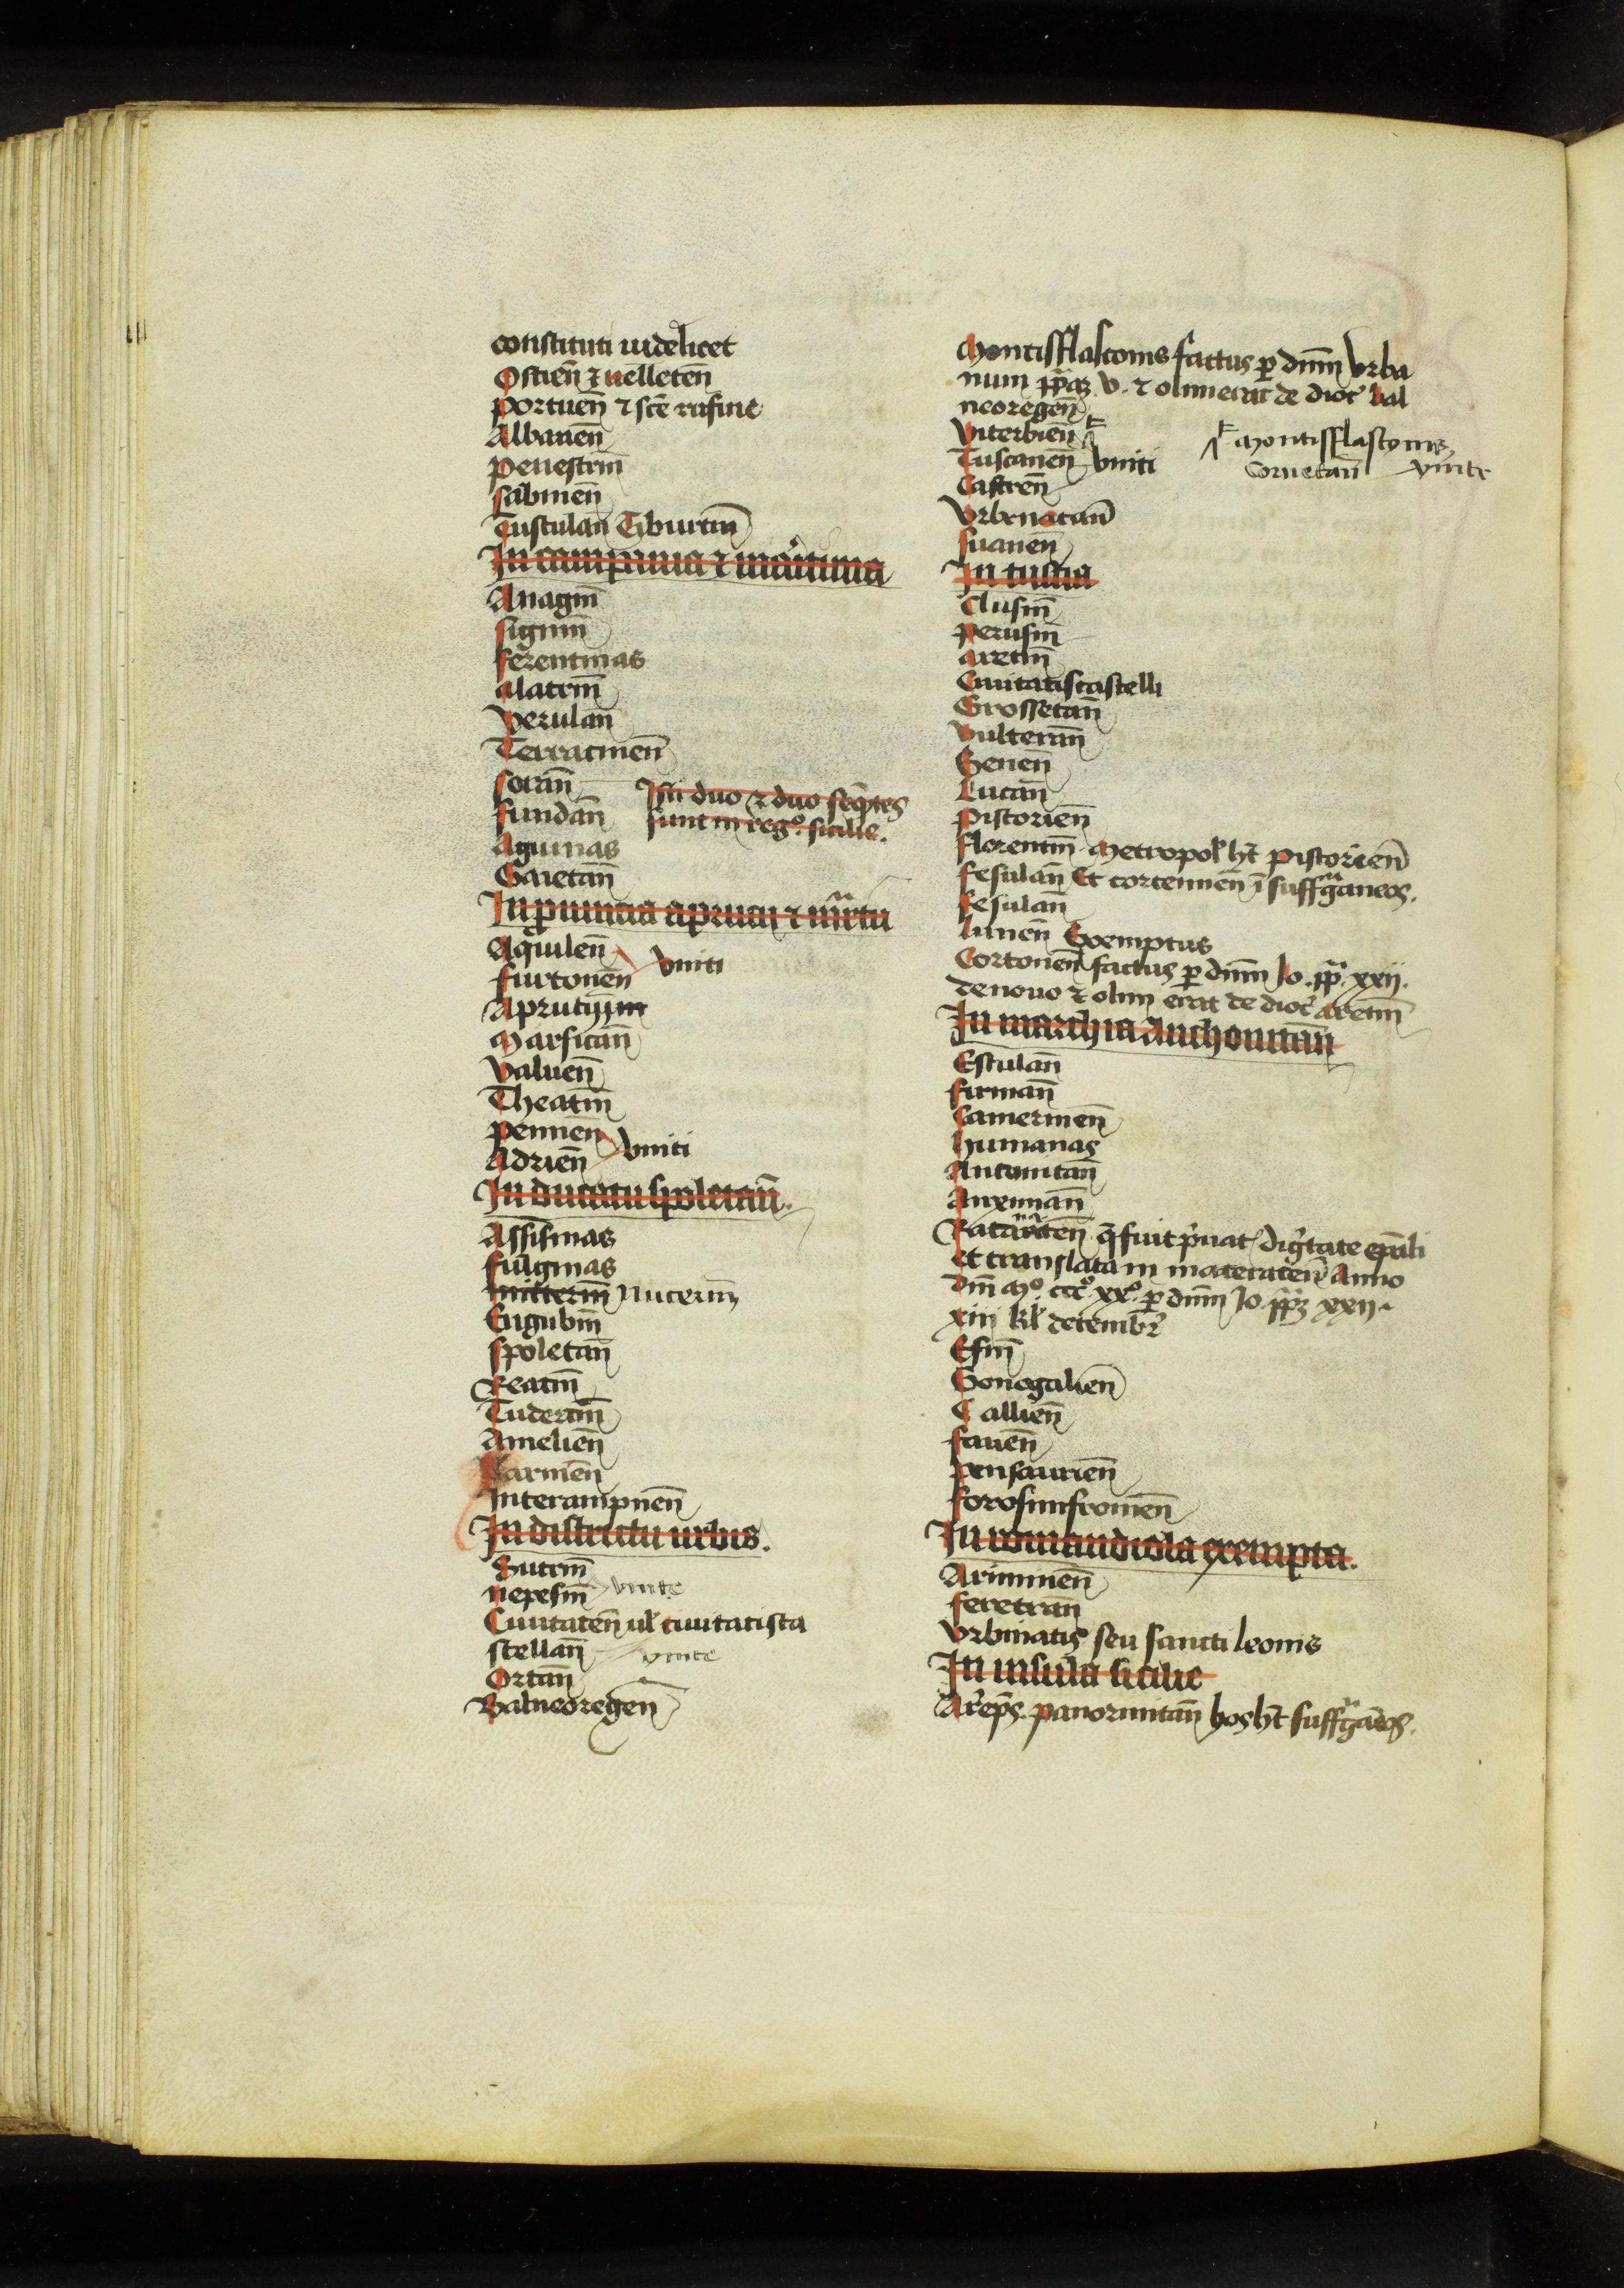 constituti uidelicet
Ostien̄ ⁊ uelleten̄
Portuen̄ ⁊ sc̄e rufine
Albanen̄
Penestrin̄
Sabinen̄
Tusculan̄ Tiburtin̄
In campania ⁊ maritima
Anagin̄
Signin̄
Ferentinas
Alatrin̄
Verulan̄
Terracinen̄
Soran̄
Isti duo ⁊ duo seq̄ntes
Fundan̄
sunt in regº. sicilie.
Aquinas
Gaietan̄
In ꝓuincia aprucij ⁊
Aquilen̄
Furconen̄ vniti
Aprutijn̄
Marsican̄
Valuen̄
Theatin̄
Pennen̄
Adrien̄ vniti
In ducatu spoletan̄.
Assisinas
Fulginas
Nucerin̄
Eugubin̄
Spoletan̄
Reatin̄
Tudertin̄
Amelien̄
Narnien̄
Interampnen̄
In districtu urbis.
Sutrin̄
Nepesin̄ vnite
Ciuitaten̄ ul̓ ciuitatisca
stellan̄
vnite
Ortan̄
Balneoregen̄
Montisflasconis factus ꝑ dnm̄ Vrba
num pp̄ā V. ⁊ olim erat de dioc̓ bal
neoregen̄
Viterbien̄
Montisflasconis
Tuscanen̄ vniti
Cornetan̄ vnite
Castren̄
Vrbeuetan̄
Suanen̄
In tuscia
Clusin̄
Perusin̄
Aretin̄
Ciuitatiscastelli
Grossetan̄
Vulteran̄
Senen̄
Lucan̄
Pistorien̄
Florentin̄ Metropol̓ ht̄ Pistorien̄
Fesulan̄ Et cortennen̄ ī suffraganeos.
Fesulan̄
Lunen̄ Exemptus
Cortonen̄ factus ꝑ dnm̄ Jo. pp̄. xxij.
denouo ⁊ olim erat de dioc̓ aretin̄
In marchia Anchonitan̄
Esculan̄
Firman̄
Camerinen̄
Humanas
Anconitan̄
Auximan̄
Racanaten̄ q̄ fuit p̓uat̓ dig̓tate ep̄ali
et translata in maceraten̄ Anno
Dn̄i Mº. cccº. xxº. ꝑ dnm̄ Jo. pp̄ xxij.
xiij kl̓ decembr̓
Esin̄
Senogalien̄
Callien̄
Fanen̄
Pensaurien̄
Forosimfronien̄
In romandiola exempta.
Ariminen̄
Feretran̄
Vrbinatis seu sancti leonis
In insula sicilie
Ar̄ep̄s. panormitan̄ hos ht̄ suffrāgāeos.